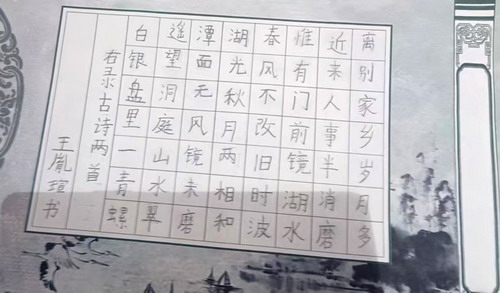 离别家乡岁月多
近来人事半消磨
惟有门前镜湖水
春风不改旧时波
湖光秋月两相和
潭面无风镜未磨
遥望洞庭山水翠
白银盘里一青螺
右录古诗两首
王胤瑄书